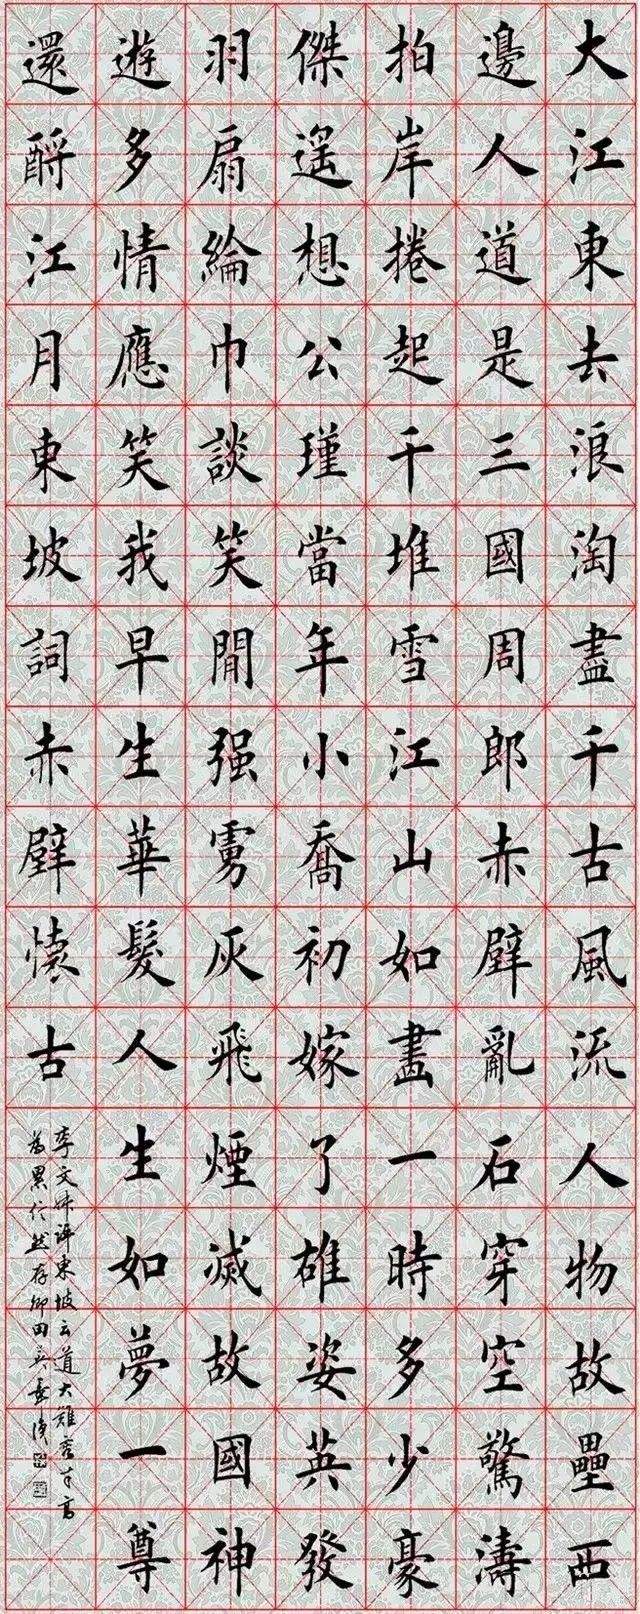 大江東去浪淘盡千古風流人物故壘西
邊人道是三國周郎赤壁亂石穿空驚濤
拍岸捲起千堆雪江山如畫一時多少豪
傑遙想公瑾當年小喬初嫁了雄姿英發
羽扇綸巾談笑間强虜灰飛煙滅故國神
遊多情應笑我早生華髮人生如夢一尊
還酹江月東坡詞赤壁懷古
評東坡云道大難容才高
為累信然存卿田英章